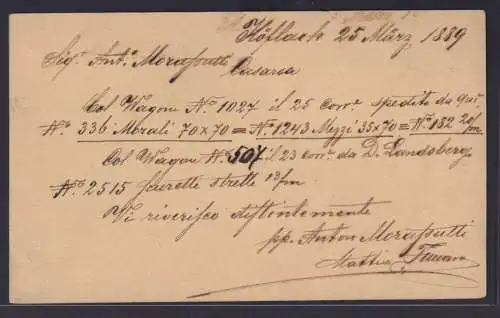 Köflach 25 März 1889
Sigr. Anto. Morassutti
Casarsa
Col Wagone No. 1027 il 25 corre. spedito da qui
No. 336 Morali 70x70 = No. 1243 Mezzi 35x70 = No. 182 20/m
Col Wagone No. 507 il 23 corr. da D. Landsberg
No. 2515 strette 13/m
Vi riverisco distintamente
pp. Anton Morassutti
Mattia